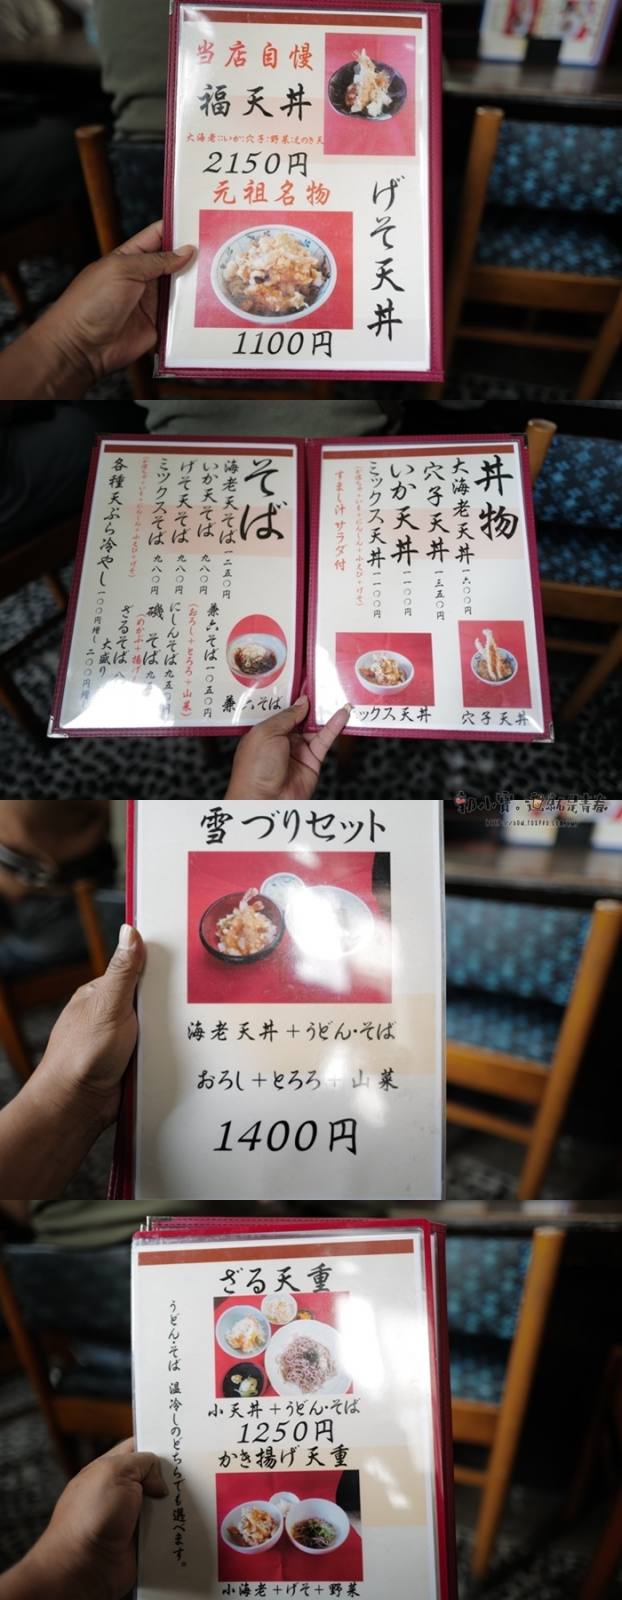 当店自慢
福天丼
大海老:いか:穴子:野菜:えのき天
2150円
元祖名物
げそ天丼
1100円
丼物
大海老天丼 一六〇〇円
穴子天丼 一三五〇円
いか天丼 一一〇〇円
ミックス天丼 一一〇〇円
すまし汁 サラダ付
穴子天丼
ックス天丼
そば
海老天そば 一二五〇円
いか天そば 九八〇円
げそ天そば 九八〇円
ミックスそば 九八〇円
各種天ぷら冷やし 一〇〇円増し
兼六そば 一〇五〇円
(おろし+とろろ+山菜)
にしんそば 九五〇円
磯そば
ざるそば
大盛り 二〇〇円増し
兼六そば
初小寶。這就是青春
雪づりセット
海老天丼+うどん・そば
おろし+とろろ+山菜
1400円
ざる天重
小天丼+うどん・そば
1250円
かき揚げ天重
小海老+げそ+野菜
うどん・そば 温冷しのどちらでも選べます。